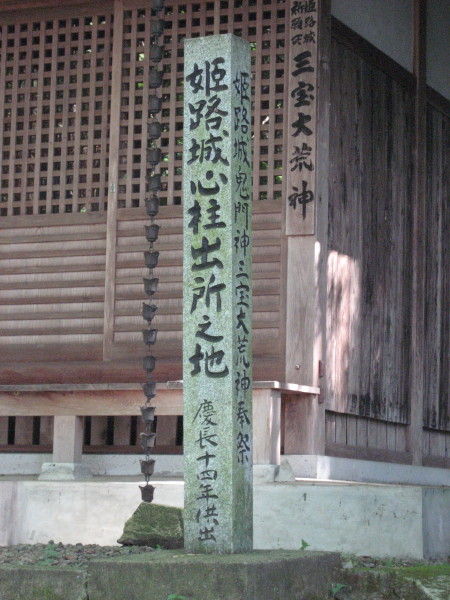 姫路城心柱出所之地
慶長十四年供出
姫路城鬼門神三宝大荒神奉祭
三宝大荒神